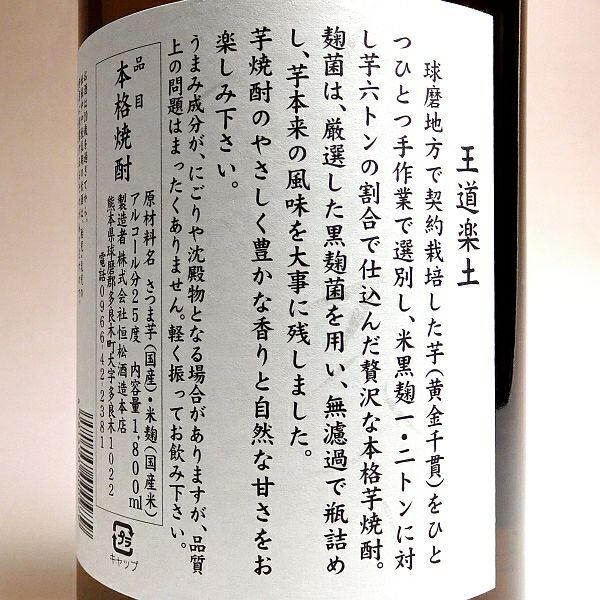 王道楽土
球磨地方で契約栽培した芋(黄金千貫)をひと
つひとつ手作業で選別し、米黒麹一・二トンに対
し芋六トンの割合で仕込んだ贅沢な本格芋焼酎。
麹菌は、厳選した黒麹菌を用い、無濾過で瓶詰め
し、芋本来の風味を大事に残しました。
芋焼酎のやさしく豊かな香りと自然な甘さをお
楽しみ下さい。
うまみ成分が、にごりや沈殿物となる場合がありますが、品質
上の問題はまったくありません。軽く振ってお飲み下さい。
品目
本格焼酎
原材料名 さつま芋(国産)・米麹(国産米)
アルコール分25度 内容量1,800ml
製造者 株式会社恒松酒造本店
熊本県球磨郡多良木町大字多良木1022
電話0966422381
プラ
キャップ